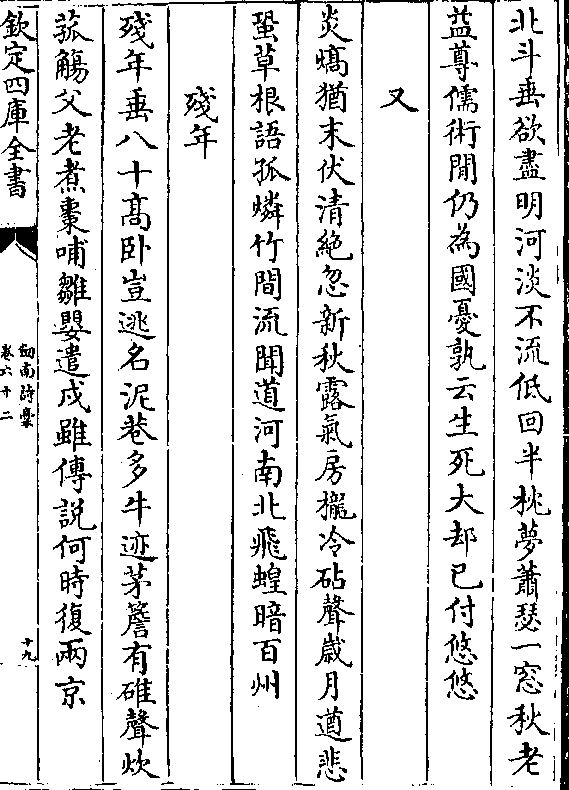 北斗垂欲盡明河淡不流低回半枕夢蕭瑟一窓秋老
益尊儒術閒仍為國憂孰云生死大却已付悠悠
又
炎熇猶末伏清絶忽新秋露氣房櫳冷砧聲歲月遒悲
蛩草根語孤燐竹間流聞道河南北飛蝗暗百州
殘年
殘年垂八十高卧豈逃名泥巷多牛迹茅簷有碓聲炊
菰觴父老煮棗哺雛嬰遣戍雖傳説何時復兩京
欽定四庫全書
劒南詩槀
卷六十二
十九